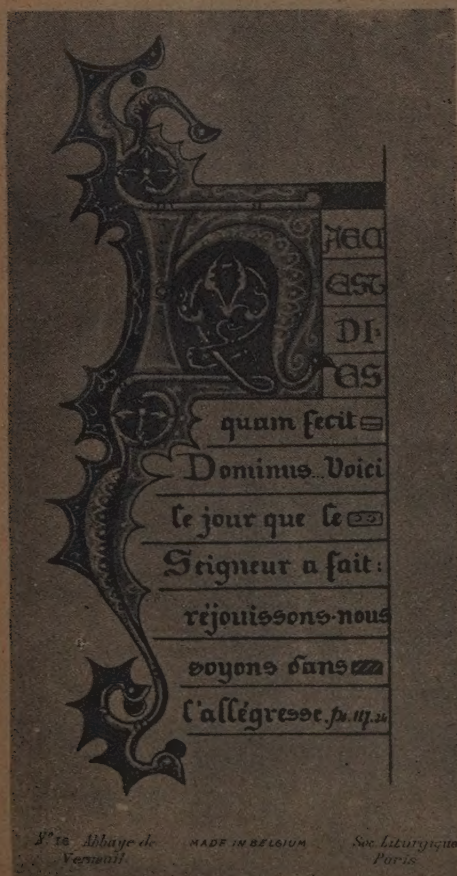 HAEC
EST
DI-
ES
quam fecit
Dominus... Voici
le jour que le
Seigneur a fait:
réjouissons-nous
soyons dans
l'allégresse. ps. 117. 24
No 16 Abbaye de
Verneuil
MADE IN BELGIUM
Soc. Liturgique
Paris